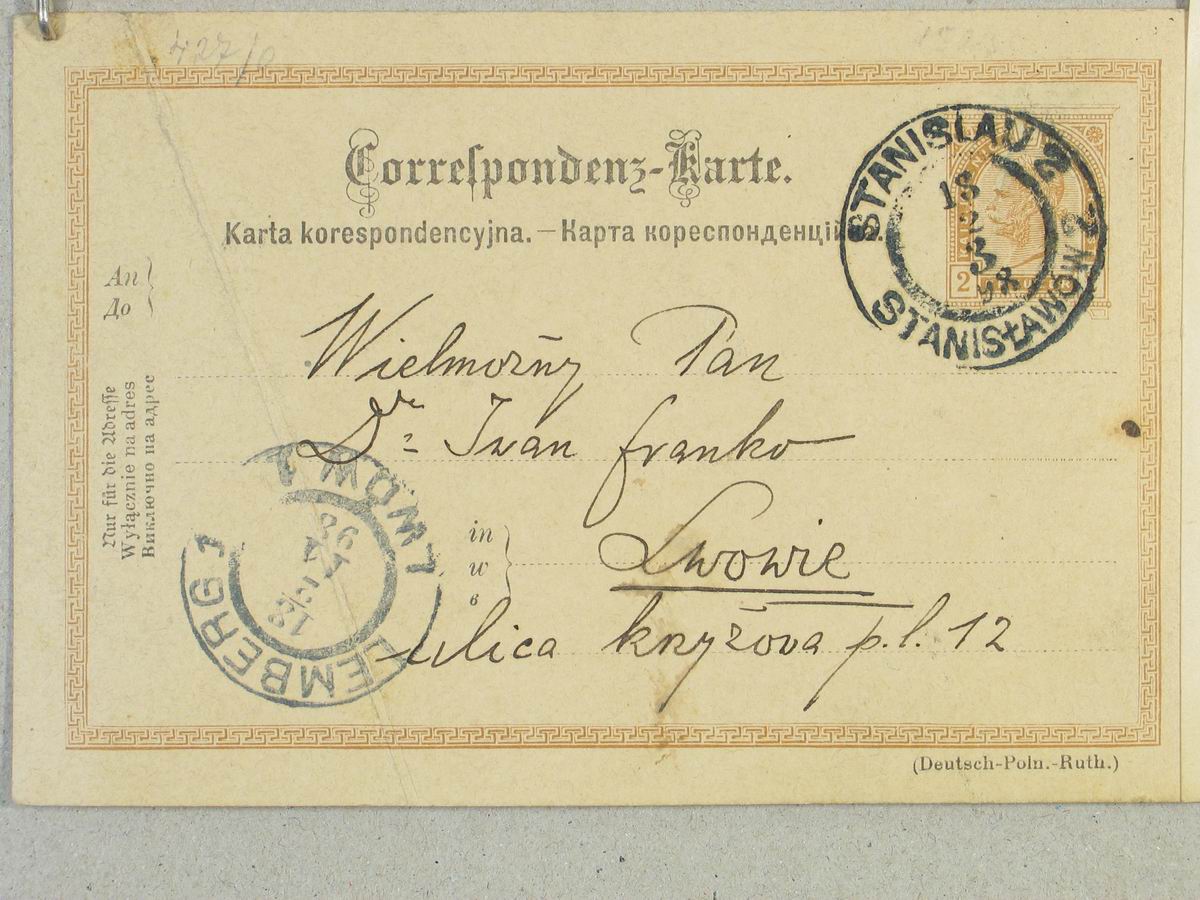 427/
Correspondenz-Karte.
Karta korespondencyjna. — Карта кореспонденцій
STANISLAU 2
18
2
3
98
STANISŁAWÓW 2
2
An
До
Nur für die Adresse
Wyłącznie na adres
Виключно на адрес
Wielmożny Pan
Dr Iwan Franko
in
w
в
Lwowie
ulica krzyżova p. l. 12
LWÓW 1
LEMBERG 1
18
98
(Deutsch-Poln.-Ruth.)